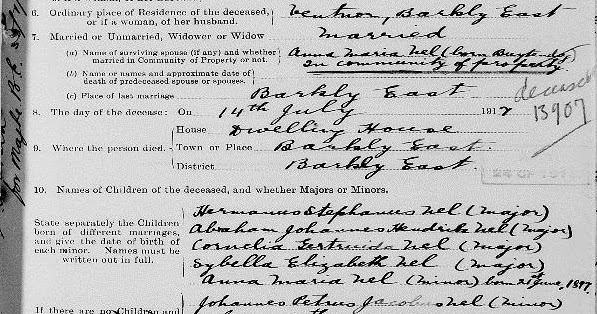 6. Ordinary place of Residence of the deceased, Ventnor, Barkly East
or if a woman, of her husband.
7. Married or Unmarried, Widower or Widow Married
(a) Name of surviving spouse (if any) and whether Anna Maria Nel (born
married in Community of Property or not. In community of property
(b) Name or names and approximate date of
death of predeceased spouse or spouses.
(c) Place of last marriage Barkly East
deceased
13907
8. The day of the decease: On 14th July 1917
House Dwelling House
9. Where the person died. Town or Place Barkly East.
District Barkly East.
10. Names of Children of the deceased, and whether Majors or Minors.
Hermanus Stephanus Nel (major)
State separately the Children Abraham Johannes Hendrik Nel (major)
born of different marriages,
and give the date of birth of Cornelia Gertruida Nel (major)
each minor. Names must be Sybella Elizabeth Nel (major)
written out in full.
Anna Maria Nel (minor) born 21st June, 1897.
Johannes Petrus Jacobus Nel (minor)
If there are no Children and